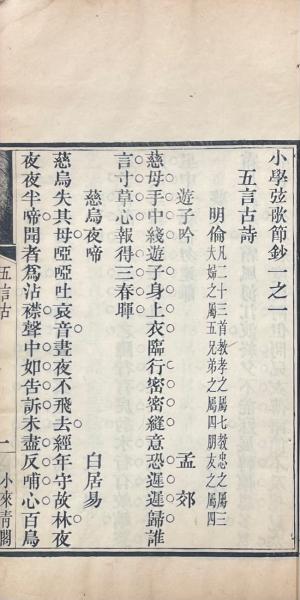 小學弦歌節鈔一之一
五言古詩
明倫凡二十三首教孝之屬七教忠之屬三夫婦之屬五兄弟之屬四朋友之屬四
遊子吟 孟郊
慈母手中綫遊子身上衣臨行密密縫意恐遲遲歸誰
言寸草心報得三春暉
慈烏夜啼 白居易
慈烏失其母啞啞吐哀音晝夜不飛去經年守故林夜
夜夜半啼聞者為沾襟聲中如告訴未盡反哺心百鳥
五言古 一 小來青閣